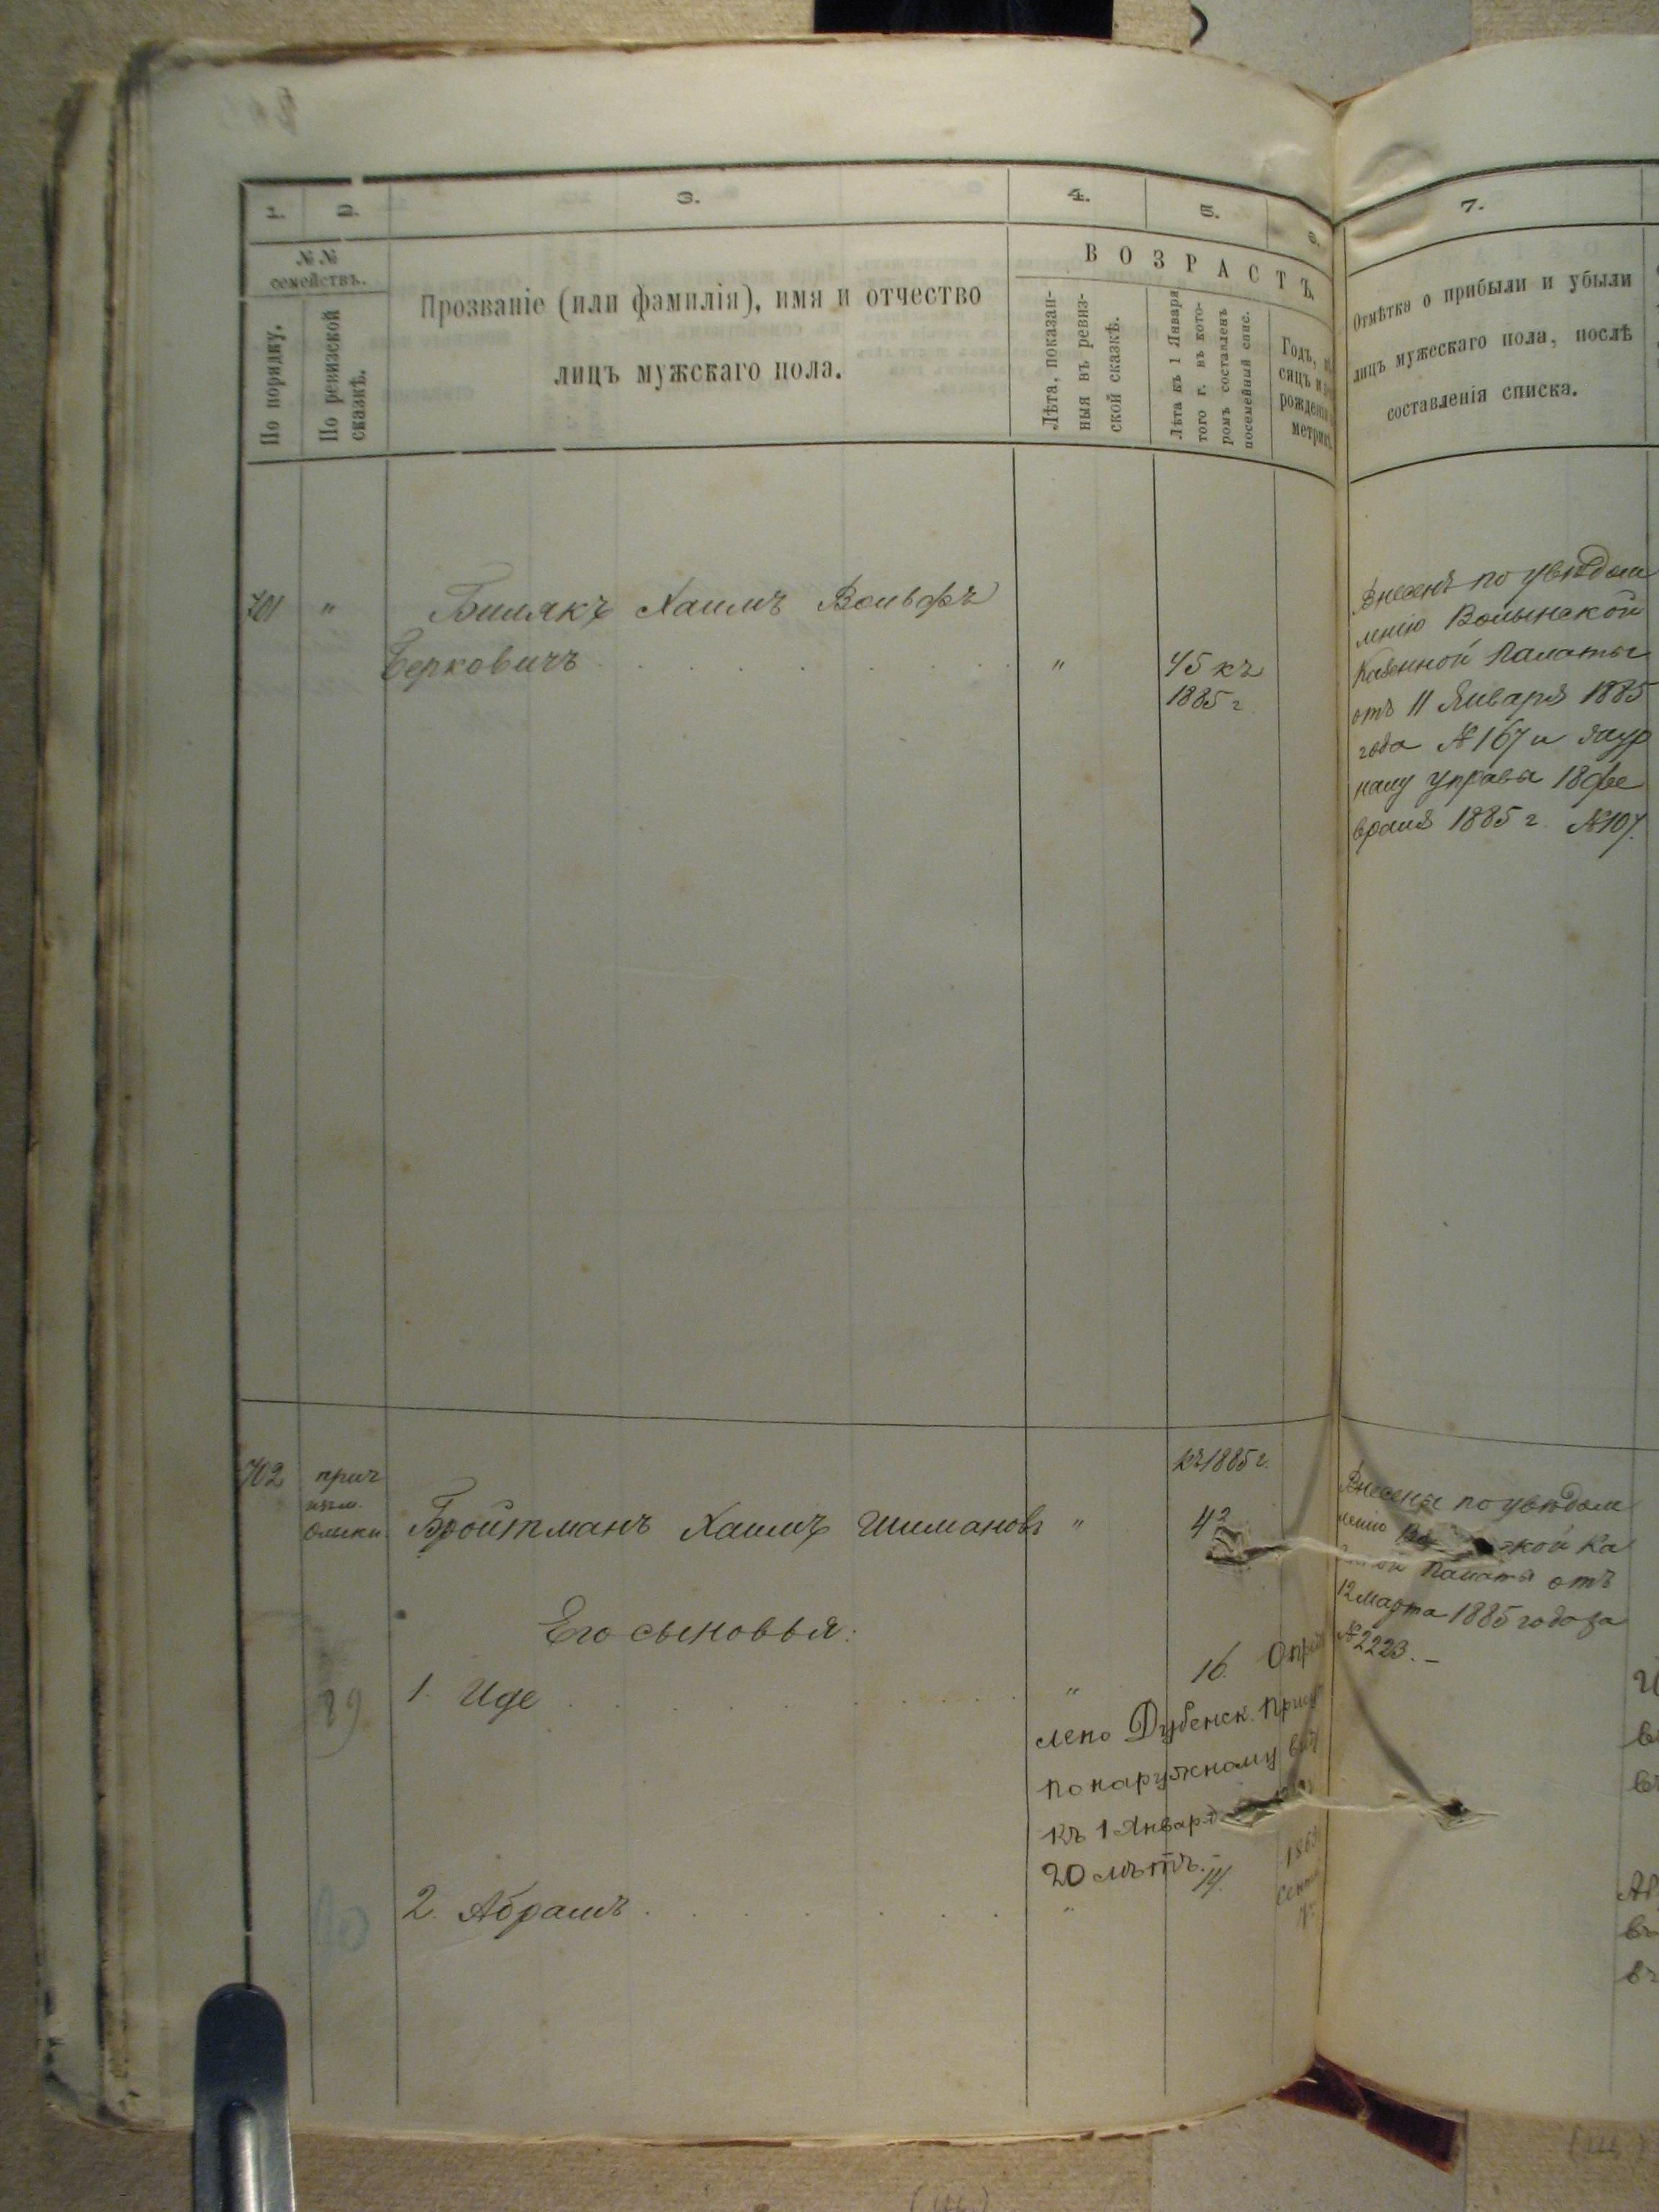 1.
2.
3.
4.
5.
6.
7.
№ №
семействъ.
По порядку.
По ревизской
сказкѣ.
Прозваніе (или фамилія), имя и отчество
лицъ мужскаго пола.
ВОЗРАСТЪ.
Лѣта, показан-
ныя въ ревиз-
ской сказкѣ.
Лѣта къ 1 Января
того г. въ кото-
ромъ составленъ
посемейный спис.
Годъ,
сяцъ и
рожденія
метрик
Отмѣтка о прибыли и убыли
лицъ мужескаго пола, послѣ
составленія списка.
701 " Билякъ Хаимъ Вольфъ
Берковичъ " 45 къ
1885 г.
Внесенъ по увѣдом
ленію Волынской
Казенной Палаты
отъ 11 Января 1885
года № 167 и жур
налу управы 18 фе
враля 1885 г. № 107.
702 прич
Олыки.
къ 1885 г.
Бройтманъ Хаимъ Шимановъ " 42
Внесены по увѣдом
ленію ской Ка
Палаты отъ
12 Марта 1885 года за
№ 2223. –
Его сыновья:
89
1. Иде " 16. Опред
лено Дубенск. Прис
по наружному виду
къ 1 Января
20 лѣтъ.
2. Абрамъ " 14. 1868
Сент